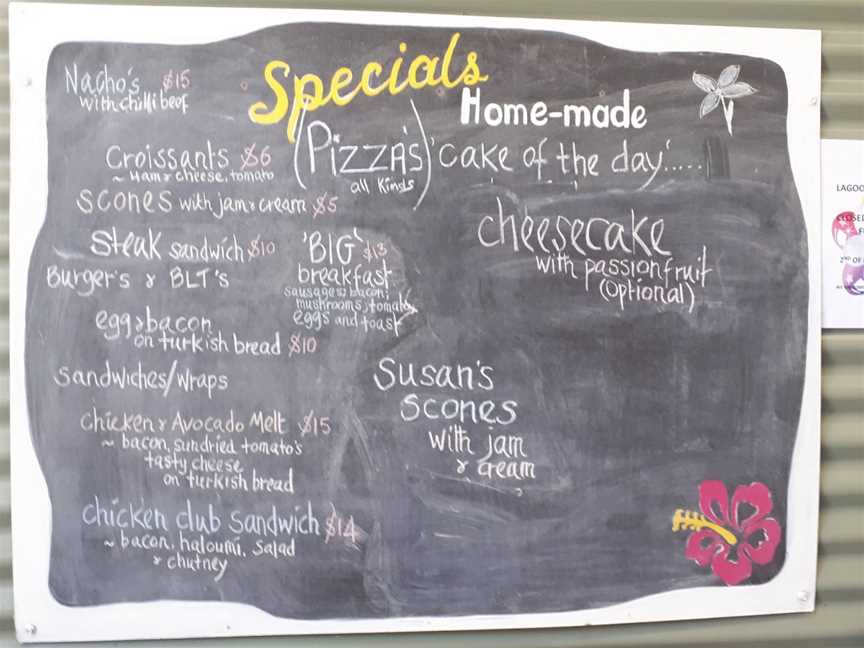 Specials
Nacho's $15
with chilli beef
Croissants $6
~ Ham & cheese, tomato
scones with jam & cream $5
Steak sandwich $10
Burger's & BLT's
egg & bacon
on turkish bread $10
Sandwiches/Wraps
chicken & Avocado Melt $15
~ bacon, sundried tomato's
tasty cheese
on turkish bread
chicken club sandwich $14
~ bacon, haloumi, salad
& chutney
(PIZZA'S)
all Kinds
'BIG' $13
breakfast
sausages, bacon,
mushrooms, tomato
eggs and toast
Home-made
'cake of the day'.....
cheesecake
with passionfruit
(optional)
Susan's
scones
with jam
& cream
LAGOO
CLOSED
2ND OF